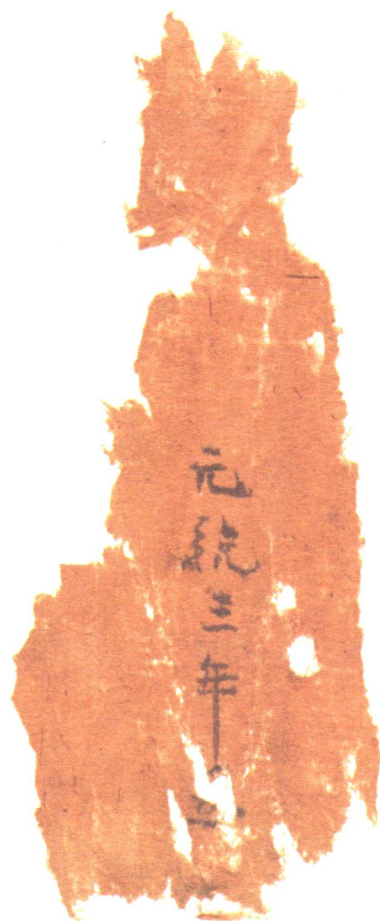 元統三年五